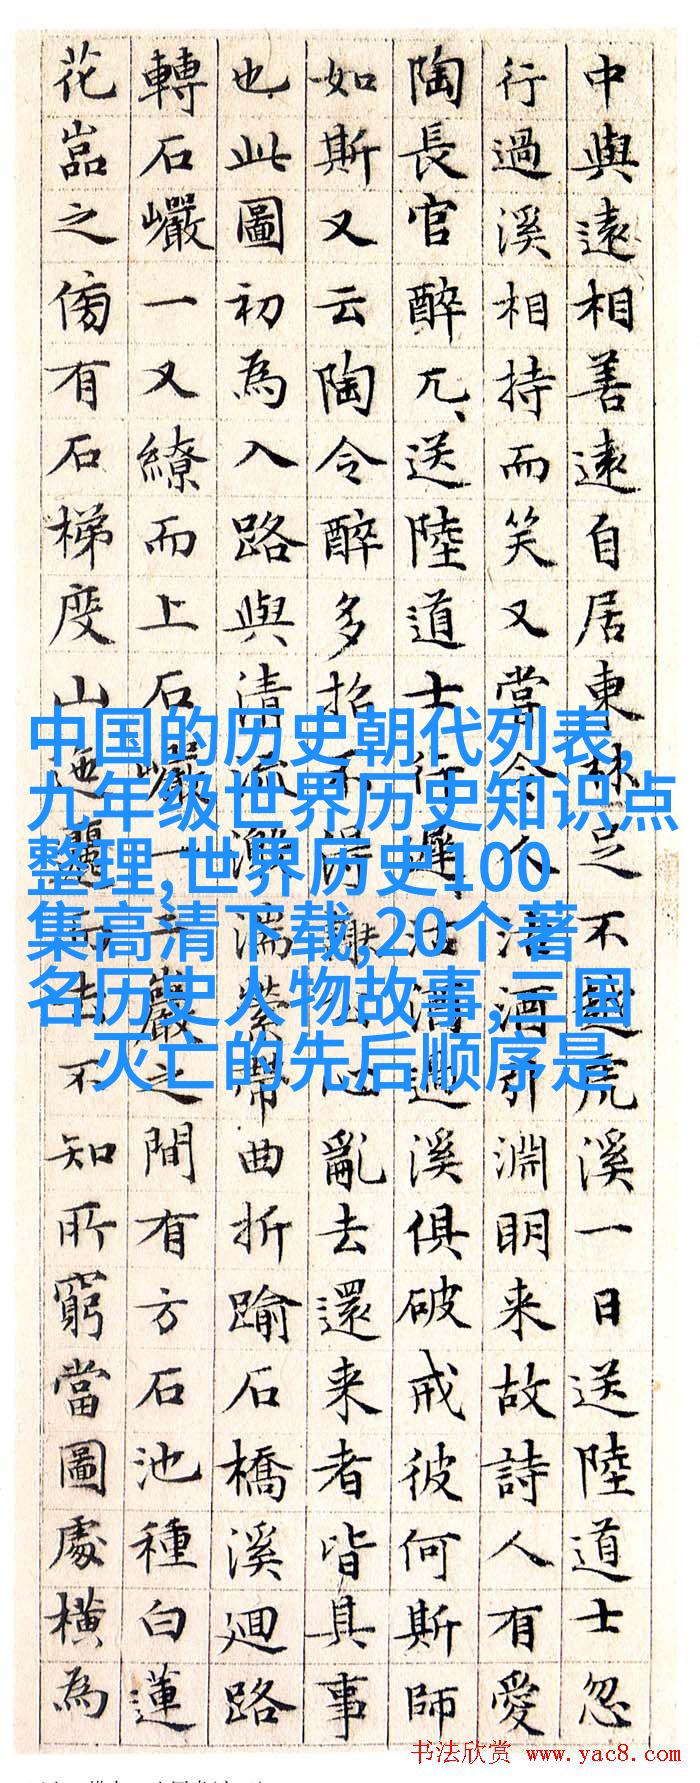 中與遠相善遠自居東林足不越虎溪一日送陸道士忽
行過溪相持而笑又當令人沽酒引淵明来故詩人有愛
陶長官醉兀、送陸道士行遲、沽酒過溪俱破戒彼何斯師
如斯又云陶令醉多招不得謝公心亂去還来者皆具事
也此圖初為入路與清流激湍縈帶曲折踰石橋溪迴路
轉石巖一又繚而上石巖一巖之間有方石池種白蓮
花嵓之傍有石梯度山迤邐而去不知所窮當圖處橫為
中国的历史朝代列表,
九年级世界历史知识点
整理,世界历史100
集高清下载,20个著
名历史人物故事,三国
灭亡的先后顺序是
书法欣赏 www.yac8.com